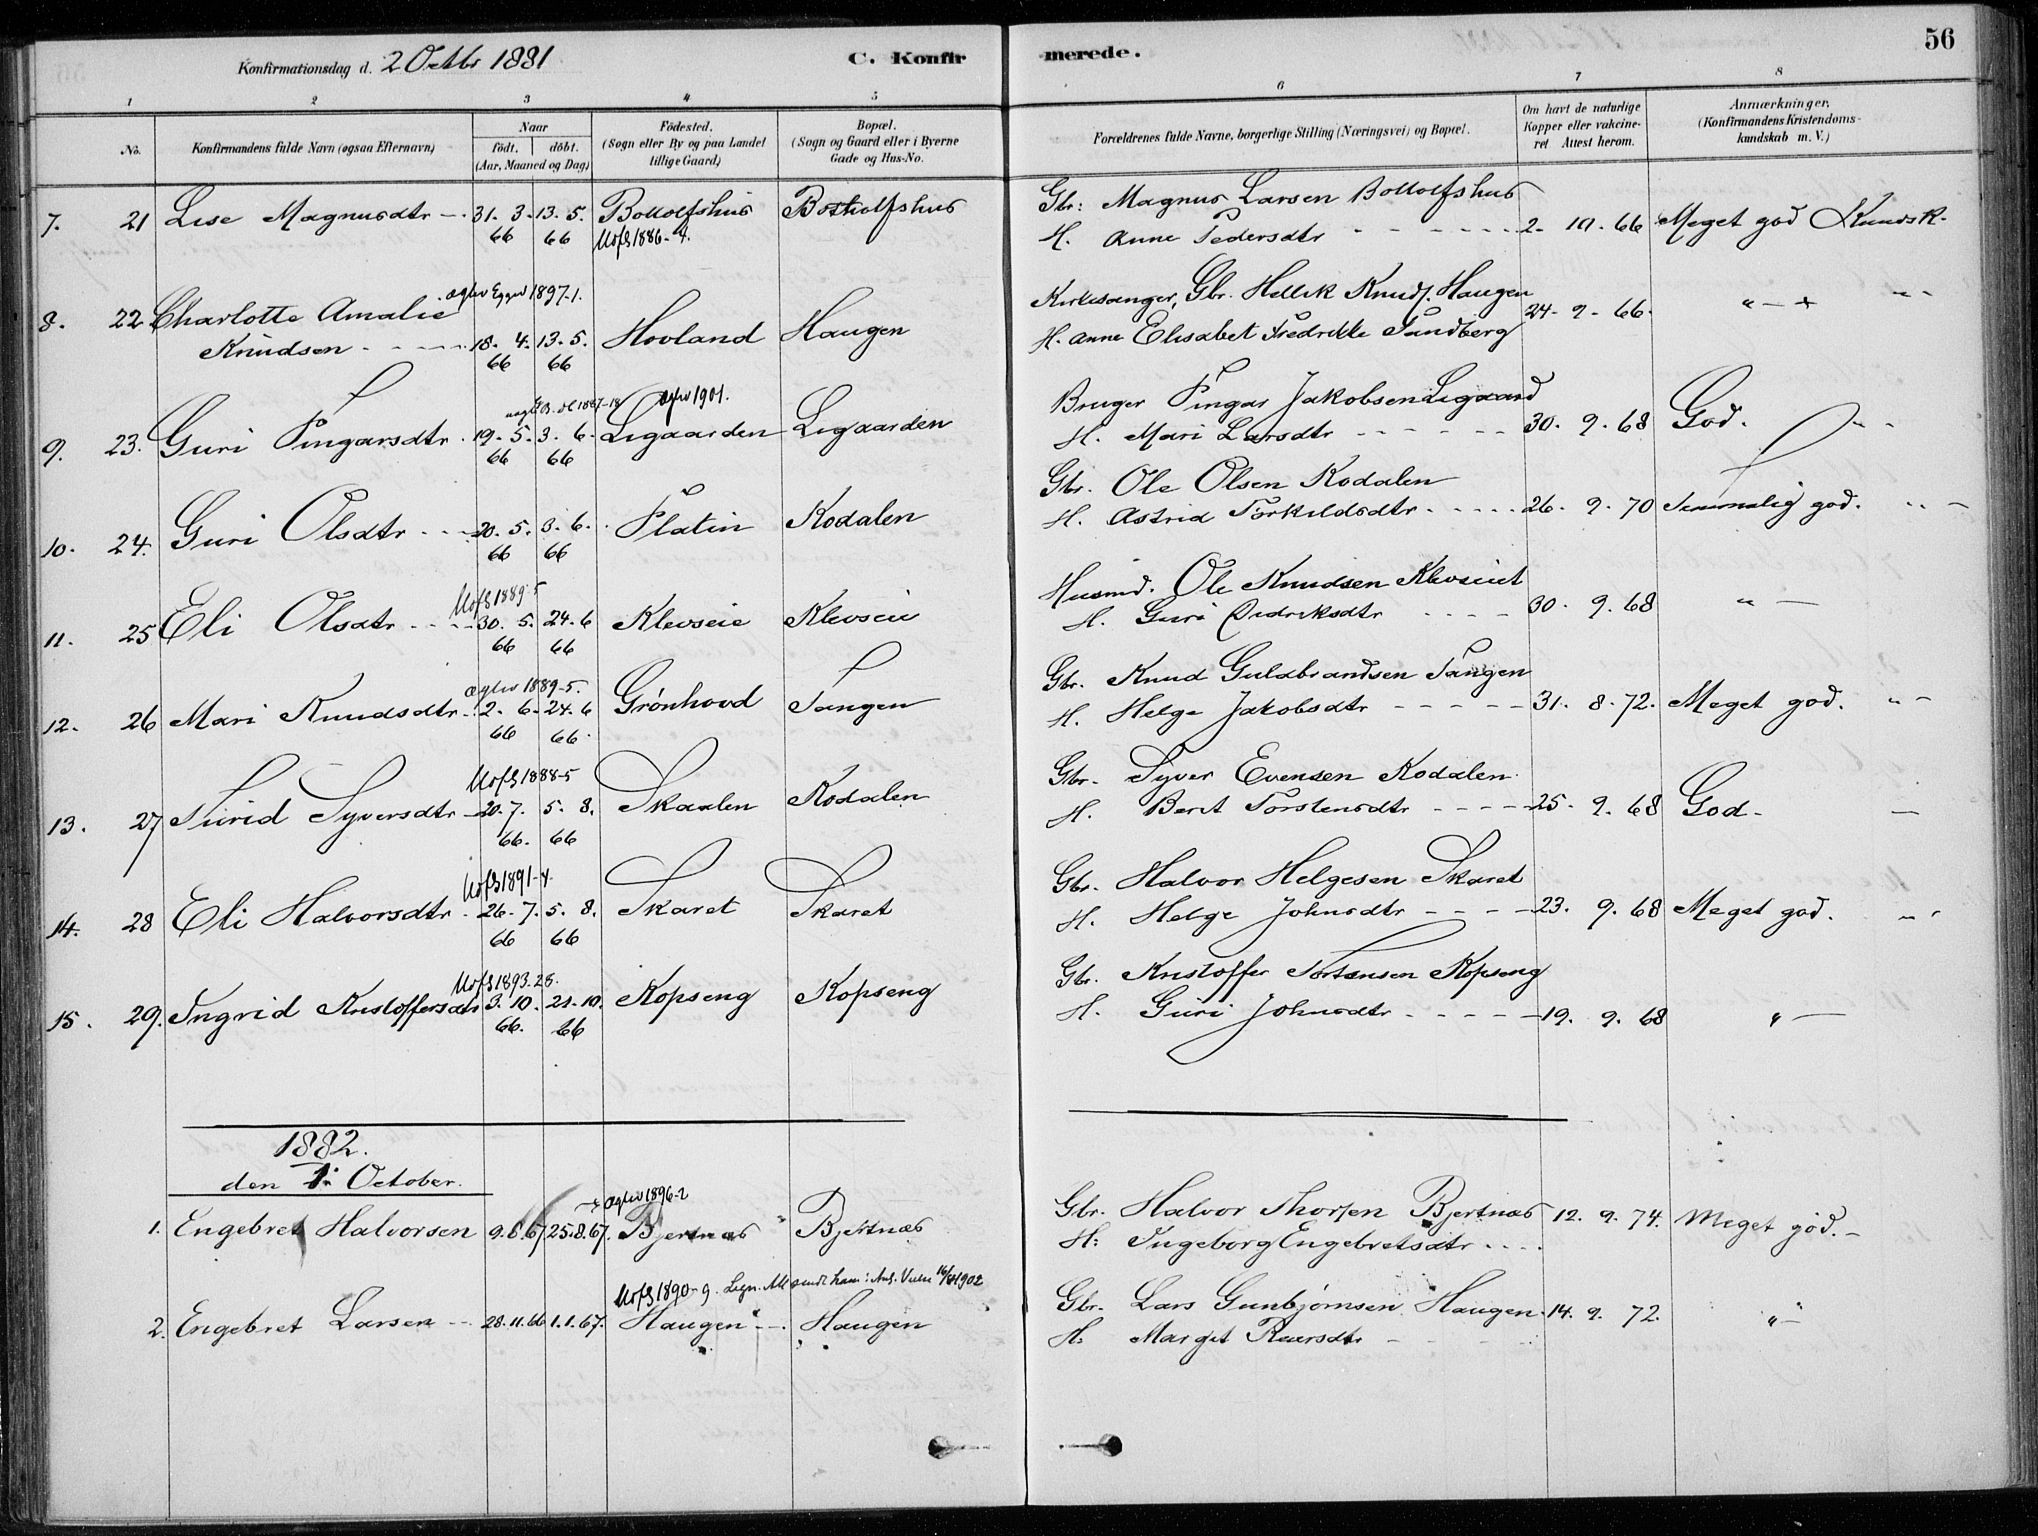 56
Konfirmationsdag d. 2 Octbr 1881
C. Konfirmerede.
1 2 3 4 5 6 7 8
No.
Konfirmandens fulde Navn (ogsaa Efternavn)
Naar
födt. döbt.
(Aar, Maaned og Dag)
Födested.
(Sogn eller By og paa Landet
tillige Gaard)
Bopæl.
(Sogn og Gaard eller i Byerne
Gade og Hus-No.
Forældrenes fulde Navne, borgerlige Stilling (Næringsvei) og Bopæl.
Om havt de naturlige
Kopper eller vakcine-
ret Attest herom.
Anmærkninger.
(Konfirmandens Kristendoms-
kundskab m. V.)
7. 21 Lise Magnusdtr 31. 3. 13. 5. Bottolfshus Bottolfshus Gbr: Magnus Larsen Bottolfshus
66 66 Uofs 1886-4. H. Anne Pedersdtr 2. 10. 66 Meget god Kundsk.
æglev Egger 1897-1.
8. 22 Charlotte Amalie Kirkesanger, Gbr. Hellik Knuds. Haugen
Knudsen 18. 4. 13. 5. Hovland Haugen H. Anne Elisabet Fredrikke Sandberg 24. 9. 66. " - "
66 66
æglev 1901.
9. 23. Guri Fingarsdtr 19. 5. 3. 6. Ligaarden Ligaarden Bruger Fingar Jakobsen Ligaard
66 66 H. Mari Larsdtr 30. 9. 68 God.
10. 24. Guri Olsdtr 20. 5. 3. 6. Flatin Kodalen Gbr. Ole Olsen Kodalen
66 66 H. Astrid Torkildsdtr 26. 9. 70 Temmelig god.
Uofs 1889-5
11. 25 Eli Olsdtr 30. 5. 24. 6 Klevseie Klevseie Husmd. Ole Knudsen Klevseiet
66 66 H. Guri Didriksdtr 30. 9. 68 " -
æglev 1889-5.
12. 26 Mari Knudsdtr 2. 6. 24. 6 Grønhovd Tangen Gbr. Knud Guldbrandsen Tangen
66 66. H. Helge Jakobsdtr 31. 8. 72. Meget god.
Uofs 1888-5
13. 27 Turid Syversdtr 20. 7. 5. 8. Skaalen Kodalen Gbr. Syver Evensen Kodalen
66. 66 H. Berit Torstensdtr 25. 9. 68 God.
Uofs 1891-4.
14. 28 Eli Halvorsdtr 26. 7. 5. 8. Skaret Skaret Gbr. Halvor Helgesen Skaret
66 66 H. Helge Johnsdtr 23. 9. 68 Meget god.
Uofs 1893-28.
15. 29. Ingrid Kristoffersdtr 3. 10. 21. 10. Kopseng Kopseng Gbr. Kristoffer Torstensen Kopseng
66. 66 H. Guri Johnsdtr 19. 9. 68 " -
1882.
den 1. October.
æglev 1896-2
1. Engebret Halvorsen 9.6.67 25.8.67. Bjertnæs Bjertnæs Gbr. Halvor Thorsen Bjertnæs 12. 9. 74. Meget god.
H: Ingeborg Engebretsdtr
Uofs 1890-9. 1902
2. Engebret Larsen 28.11.66 1.1.67. Haugen Haugen Gbr. Lars Gunbjørnsen Haugen 14. 9. 72. " -
H. Margit Reiersdtr